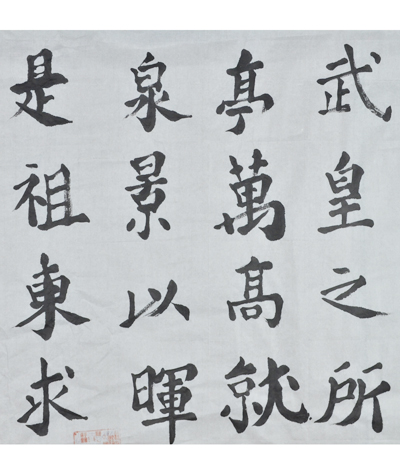 武皇之所
亭萬髙就
泉景以暉
是祖東求